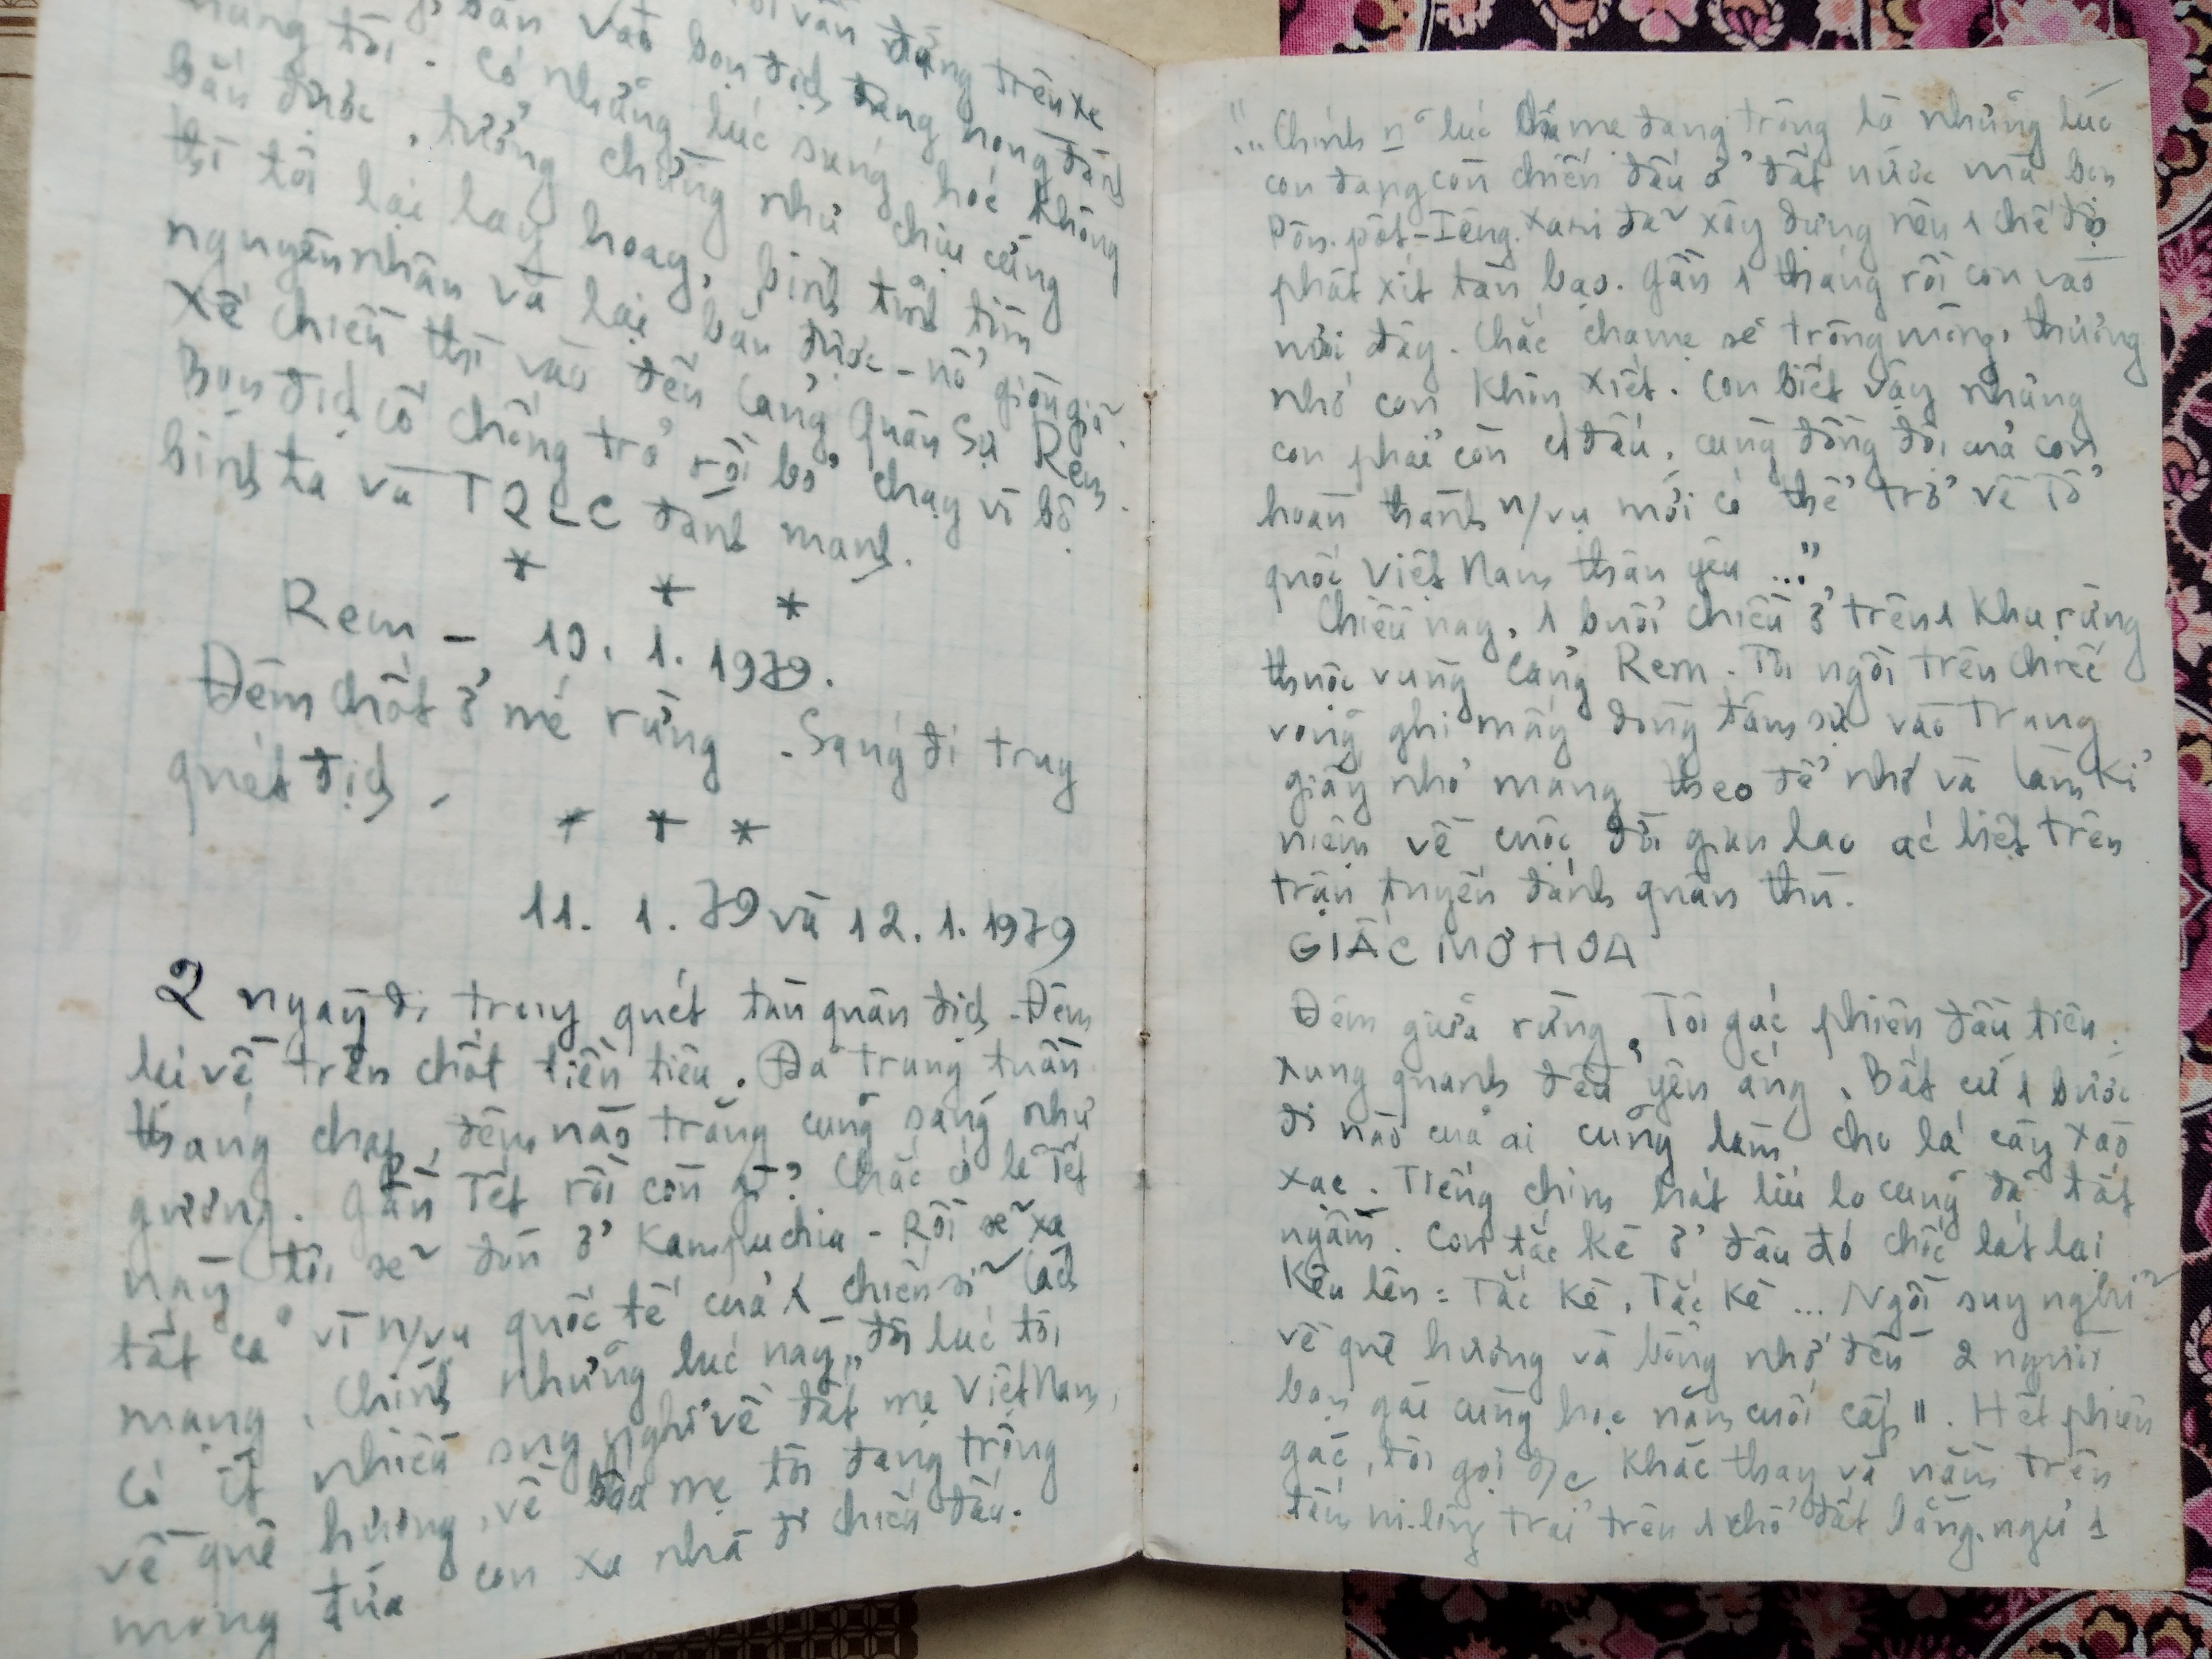 bắn vào bọn địch đang nong đánh
vẫn đứng trên xe
chúng tôi. Có những lúc súng hóc không
bắn được, tưởng chừng như chịu cứng
thì tôi lại lay hoay, bình tĩnh tìm
nguyên nhân và lại bắn được - nổ giòn giã.
Xế chiều thì vào đến Cảng Quân Sự Rem.
Bọn địch cố chống trả rồi bỏ chạy vì bộ
binh ta và TQLC đánh mạnh.
* * *
Rem - 10. 1. 1979.
Đêm chốt ở mé rừng - Sáng đi truy
quét địch -
* * *
11. 1. 79 và 12. 1. 1979
2 ngày đi truy quét tàn quân địch - Đêm
lại về trên chốt tiền tiêu. Đã trung tuần
tháng chạp, đêm nào trăng cũng sáng như
gương. Gần Tết rồi còn gì? Chắc có lẽ Tết
này tôi sẽ đón ở Kampuchia - Rồi sẽ xa
tất cả vì n/vụ quốc tế của 1 chiến sĩ Cách
mạng. Chính những lúc này, đôi lúc tôi
có ít nhiều suy nghĩ về đất mẹ Việt Nam,
về quê hương, về cha mẹ tôi đang trông
mong đứa con xa nhà đi chiến đấu.
"... Chính n~ lúc cha mẹ đang trông là những lúc
con đang còn chiến đấu ở đất nước mà bọn
Pôn.pốt - Iêng.Xari đã xây dựng nên 1 chế độ
phát xít tàn bạo. Gần 1 tháng rồi con vào
nơi đây. Chắc cha mẹ sẽ trông mong, thương
nhớ con khôn xiết. Con biết vậy nhưng
con phải còn c/đấu, cùng đồng đội của con
hoàn thành n/vụ mới có thể trở về Tổ
quốc Việt Nam thân yêu ..."
Chiều nay, 1 buổi chiều ở trên 1 khu rừng
thuộc vùng Cảng Rem. Tôi ngồi trên chiếc
võng ghi mấy dòng tâm sự vào trang
giấy nhỏ mang theo để nhớ và làm kỉ
niệm về cuộc đời gian lao ác liệt trên
trận tuyến đánh quân thù.
GIẤC MƠ HOA
Đêm giữa rừng. Tôi gác phiên đầu tiên.
Xung quanh đều yên ắng. Bất cứ 1 bước
đi nào của ai cũng làm cho lá cây xào
xạc. Tiếng chim hát líu lo cũng đã tắt
ngấm. Con tắc kè ở đâu đó chốc lát lại
kêu lên: Tắc kè, Tắc kè ... Ngồi suy nghĩ
về quê hương và bỗng nhớ đến 2 người
bạn gái cùng học năm cuối cấp II. Hết phiên
gác, tôi gọi đ/c khác thay và nằm trên
tấm ni-lông trải trên 1 chỗ đất bằng. ngủ 1